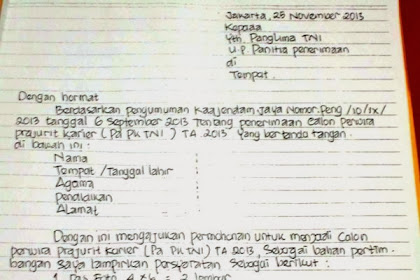 Jakarta, 25 November 2013
Kepada
Yth. Panglima TNI
u.p. Panitia penerimaan
di
Tempat.
Dengan hormat
Berdasarkan pengumuman Kaajendam Jaya Nomor.Peng /10/IX/
2013 tanggal 6 September 2013 Tentang penerimaan Calon Perwira
prajurit karier (Pa PK TNI) TA 2013 yang bertanda tangan.
di bawah ini :
Nama :
Tempat /Tanggal lahir :
Agama :
Pendidikan :
Alamat :
Dengan ini mengajukan permohonan untuk menjadi Calon
perwira prajurit karier (Pa PK TNI) TA 2013, Sebagai bahan pertim-
bangan saya lampirkan persyaratan Sebagai berikut :
1. Pas Foto 4 x 6 = 2 lembar